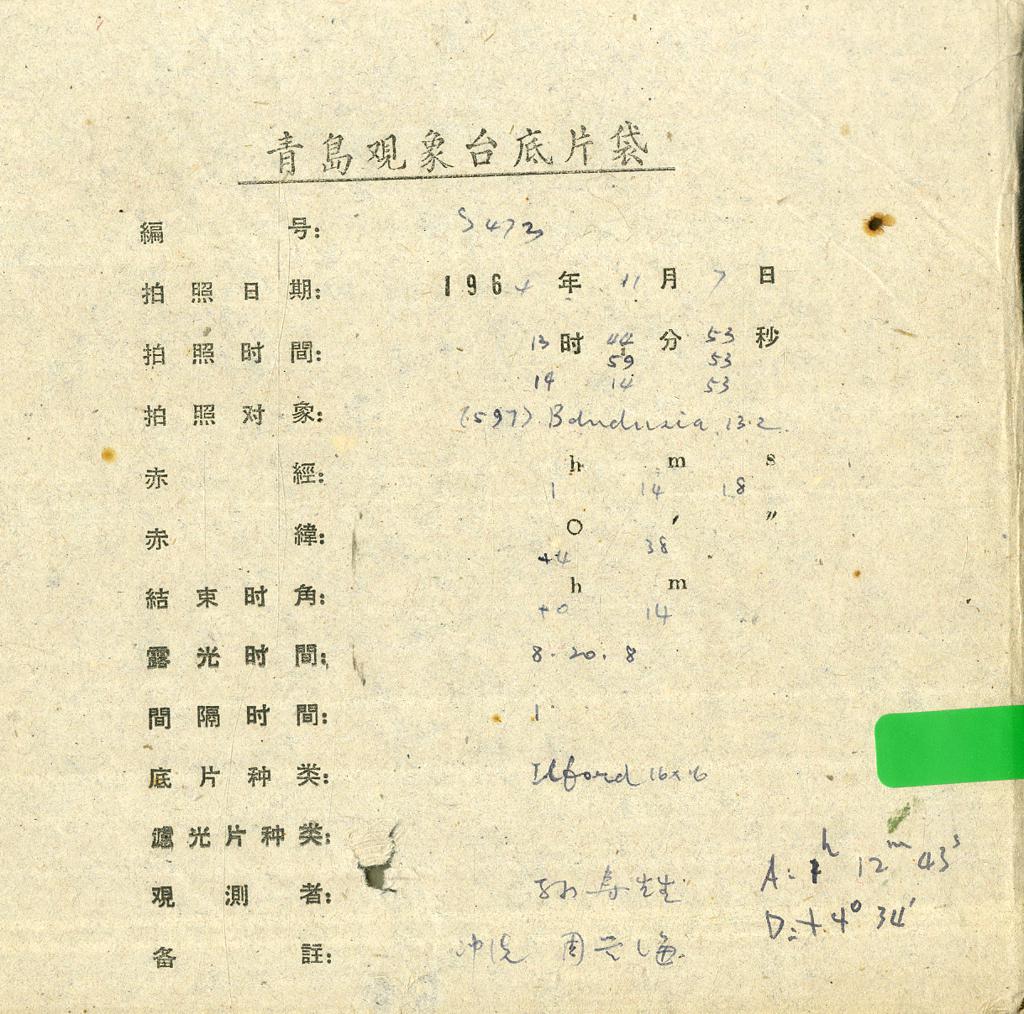 青島观象台底片袋
編号: S473
拍照日期: 1964年11月7日
拍照时間: 13时44分53秒
59 53
14 14 53
拍照对象: (597) Bandusia 13.2
赤經: h m s
1 14 18
赤緯: ○ ′ ″
+4 38
結束时角: h m
+0 14
露光时間: 8. 20. 8
間隔时間: 1
底片种类: Ilford 16×16
濾光片种类:
观測者: 孙寿
A: 1h 12m 43s
D: +4° 34′
备註: 冲洗 周兴海